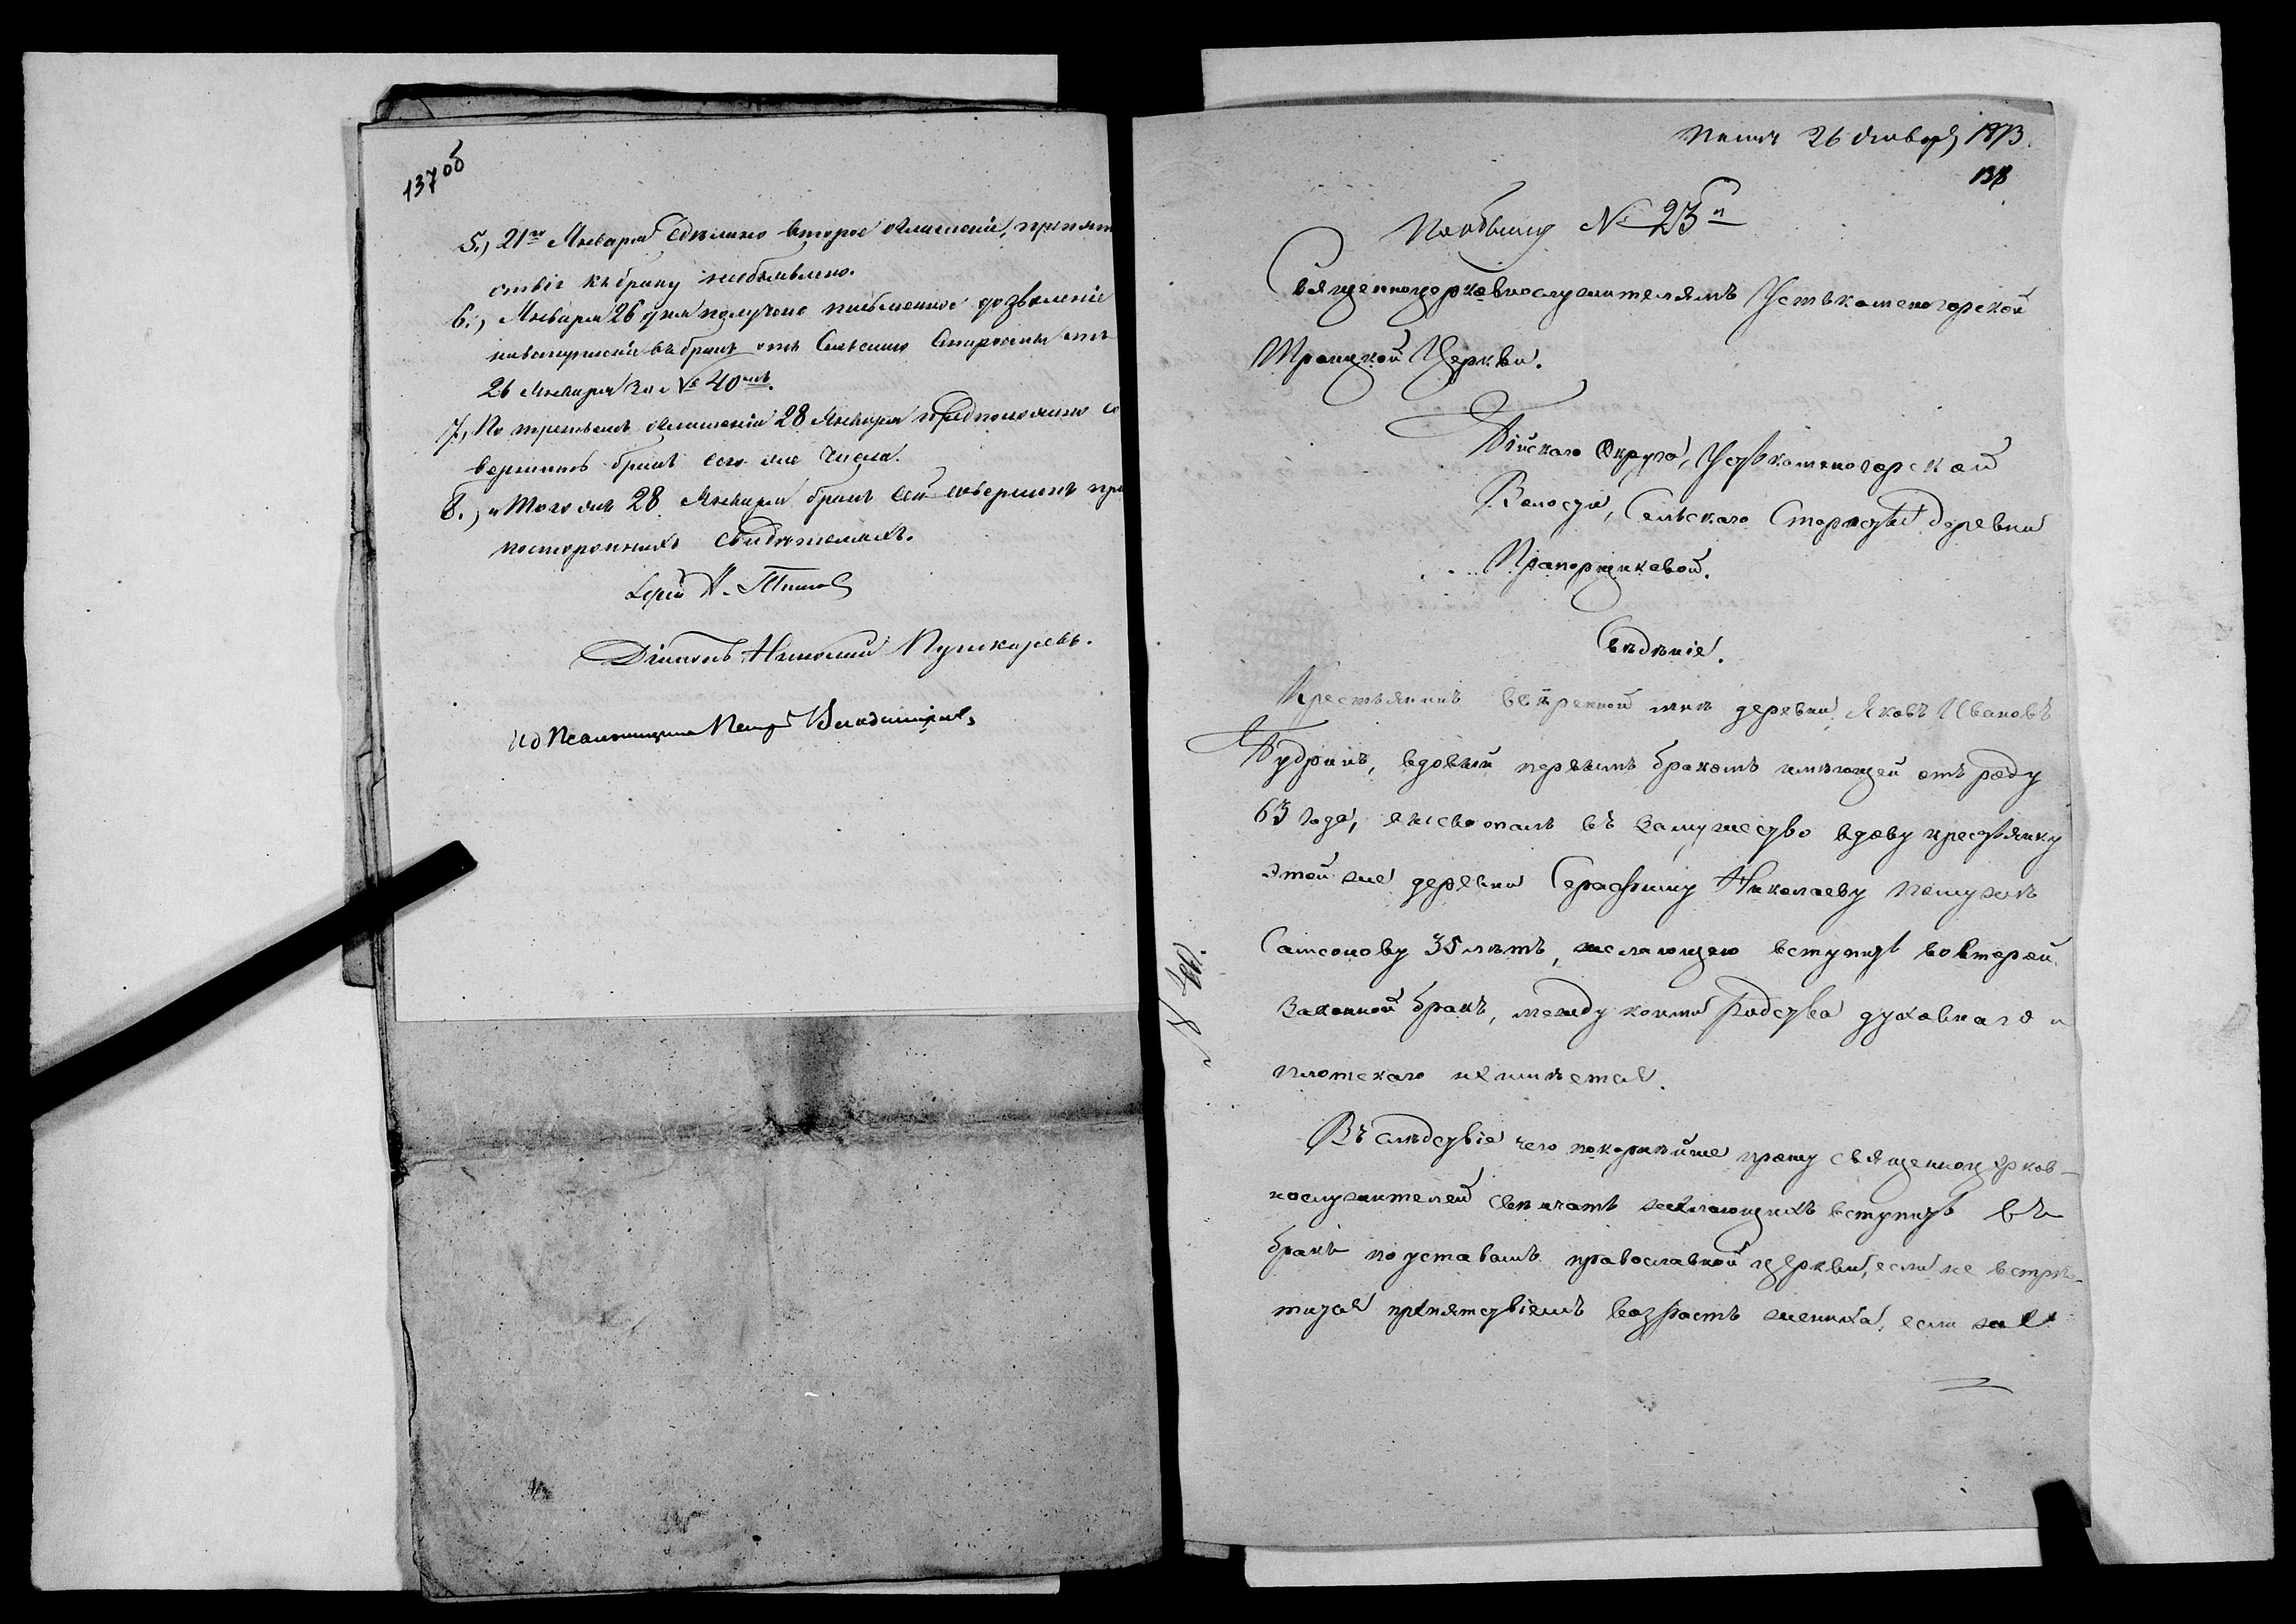 137 об
5., 21го Января сдѣлано второе оглашеніе, препят
ствія къ браку необъявлено.
6., Января 26 дня получено письменное дозволеніе
на вступленіе въ бракъ отъ Сельскаго Старосты отъ
26 Января за № 40мъ.
7., По третьемъ оглашеніи 28 Января предположено со
вершить бракъ сего же числа.
8., Того жъ 28 Января бракъ сей совершенъ при
постороннихъ свидѣтеляхъ.
Іерей
Діаконъ Николай Пушкаревъ.
ид Псаломщика Петръ Владиміровъ
26 Января 1873.
138
№ 23й
Священноцерковнослужителямъ Устькаменогорской
Троицкой Церкви.
Бійскаго Округа, Устькаменогорской
Волости, Сельскаго Старосты деревни
Прапорщиковой.
Свѣдѣніе.
Крестьянинъ ввѣренной мнѣ деревни Яковъ Ивановъ
Кудринъ, вдовый первымъ бракомъ имѣющей отъ роду
63 года, въ замужество вдову крестьянку
этой же деревни Серафиму Николаеву помужѣ
Самсонову 35 лѣтъ, желающею вступить вовторой
Законной бракъ, между коими родства духовнаго и
плотскаго неимѣется.
№ 40.
Въ слѣдствіе чего покорнѣйше прошу священноцерков-
нослужителей свѣнчать желающихъ вступить въ
бракъ по уставамъ православной церкви, если не встрѣ-
тится препятствіемъ возрастъ жениха, если же